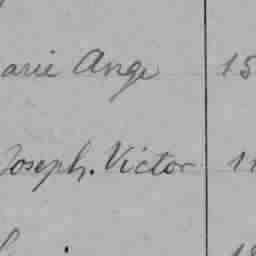 arie Ange 15
Joseph. Victor 11